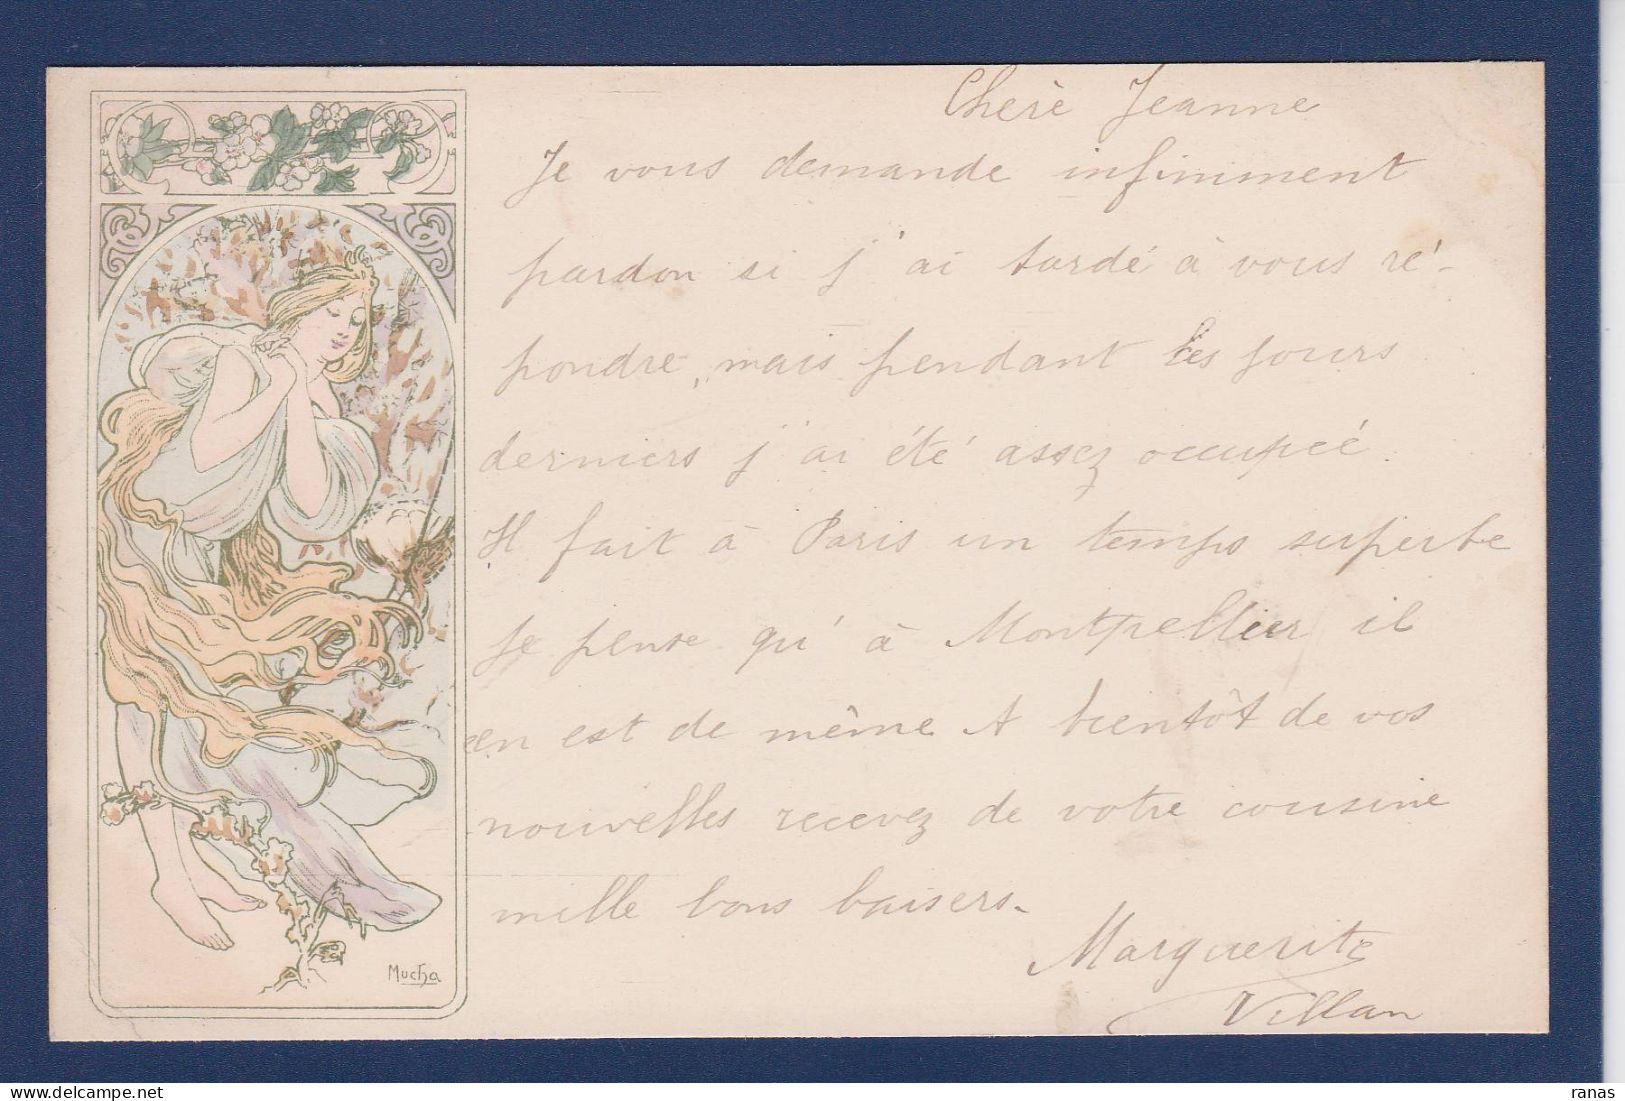 Cherè Jeanne
Je vous demande infiniment
pardon si j'ai tardé à vous ré-
pondre, mais pendant les jours
derniers j'ai été assez occupée.
Il fait à Paris un temps superbe
je pense qu'à Montpellier il
en est de même A bientôt de vos
nouvelles recevez de votre cousine
mille bons baisers.
Marguerite
Villan
Mucha
ranas